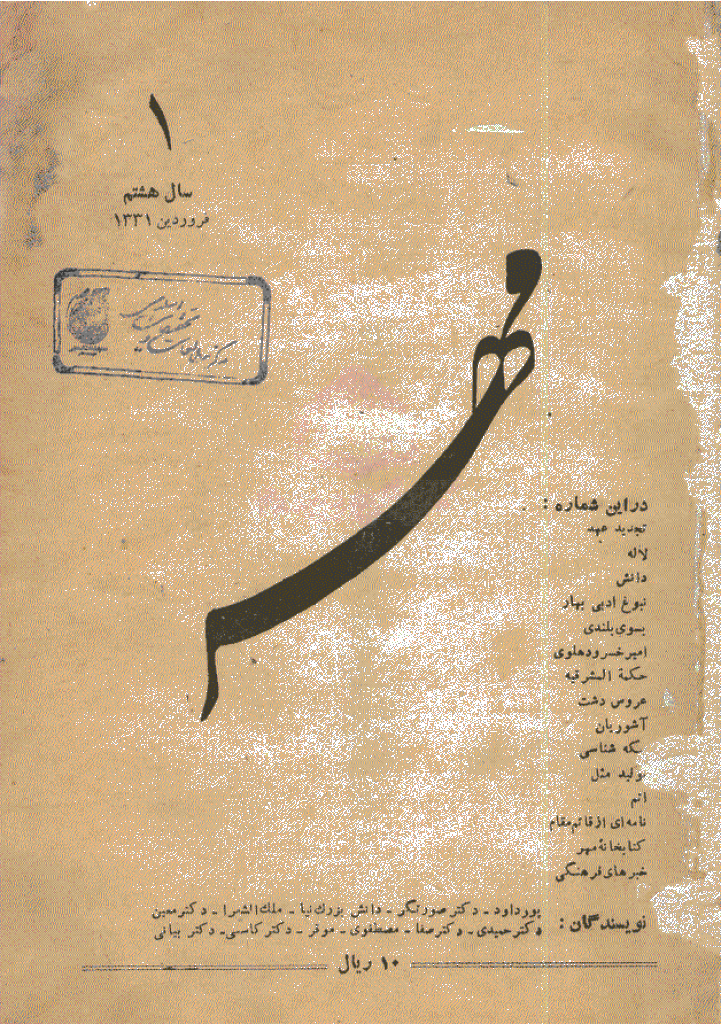 ۱
سال هشتم
فروردین ۱۳۳۱
مهر
دراین شماره :
تجدید عهد
لاله
دانش
نبوغ ادبی بهار
بسوی‌بلندی
امیرخسرودهلوی
حکمة المشرقیه
عروس دشت
آشوریان
سکه شناسی
تولید مثل
اتم
نامه‌ای ازقائم‌مقام
کتابخانهٔ مهر
خبرهای‌فرهنگی
نویسندگان :
پورداود ـ دکترصورتگر ـ دانش بزرگ‌نیا ـ ملك‌الشعرا ـ دکترمعین
دکترحمیدی ـ دکترصفا ـ مصطفوی ـ موقر ـ دکترکاسمی ـ دکتر بیانی
۱۰ ریال